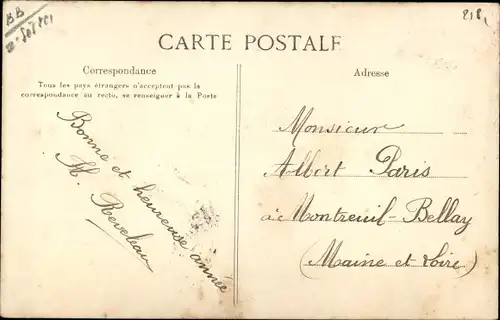 CARTE POSTALE
Correspondance
Tous les pays étrangers n'acceptent pas la
correspondance au recto, se renseigner à la Poste
Bonne et heureuse année
H. Reveleau
Adresse
Monsieur
Albert Paris
à Montreuil-Bellay
(Maine et Loire)